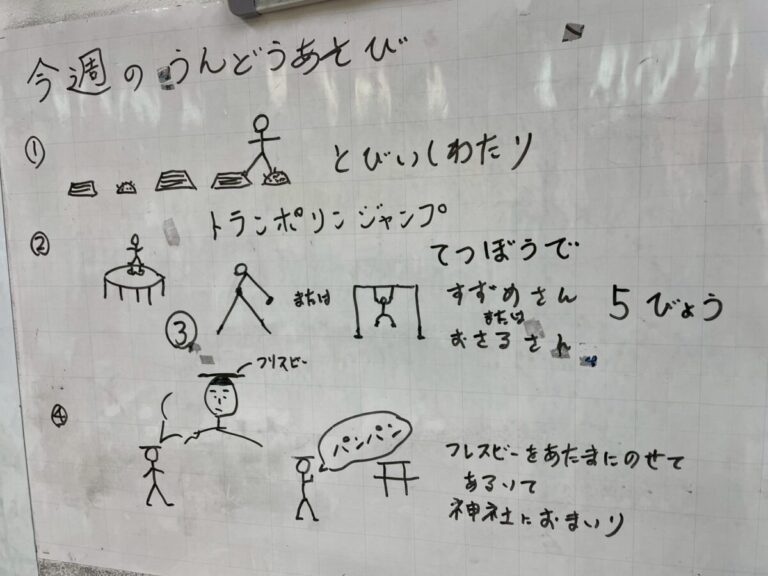 今週のうんどうあそび
① とびいしわたり
② トランポリンジャンプ
③ または
てつぼうで
すずめさん
または
おさるさん
5びょう
④ フリスビー
パンパン
フレスビーをあたまにのせて
あるいて
神社におまいり